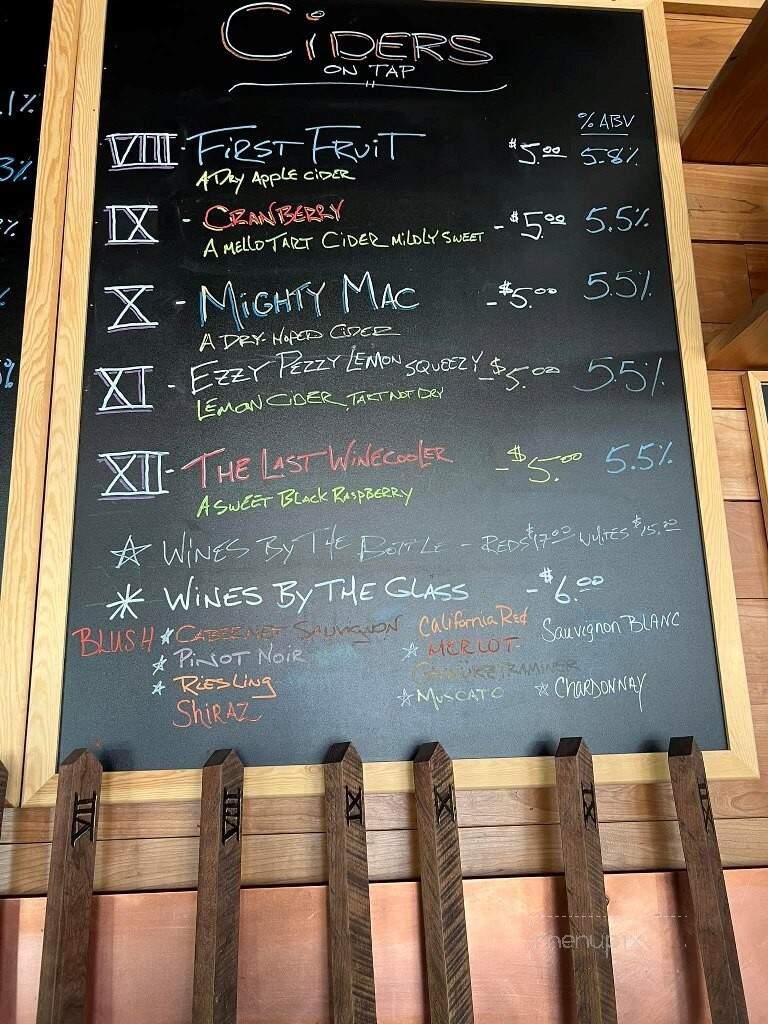 CIDERS
ON TAP
% ABV
VIII - FIRST FRUIT $5.00 5.8%
A DRY APPLE CIDER
IX - CRANBERRY - $5.00 5.5%
A MELLO TART CIDER MILDLY SWEET
X - MIGHTY MAC - $5.00 5.5%
A DRY-HOPED CIDER
XI - EZZY PEZZY LEMON SQUEEZY - $5.00 5.5%
LEMON CIDER, TART NOT DRY
XII - THE LAST WINECOOLER - $5.00 5.5%
A SWEET BLACK RASPBERRY
☆ WINES BY THE BOTTLE - REDS $17.00 WHITES $15.00
* WINES BY THE GLASS - $6.00
BLUSH ☆ CABERNET SAUVIGNON California Red Sauvignon BLANC
☆ PINOT NOIR ☆ MERLOT
☆ RIESLING GEWURZTRAMINER
SHIRAZ ☆ MUSCATO ☆ CHARDONNAY
.1%
3%
%
%
%
VII VIII IX X XI XII
menupix